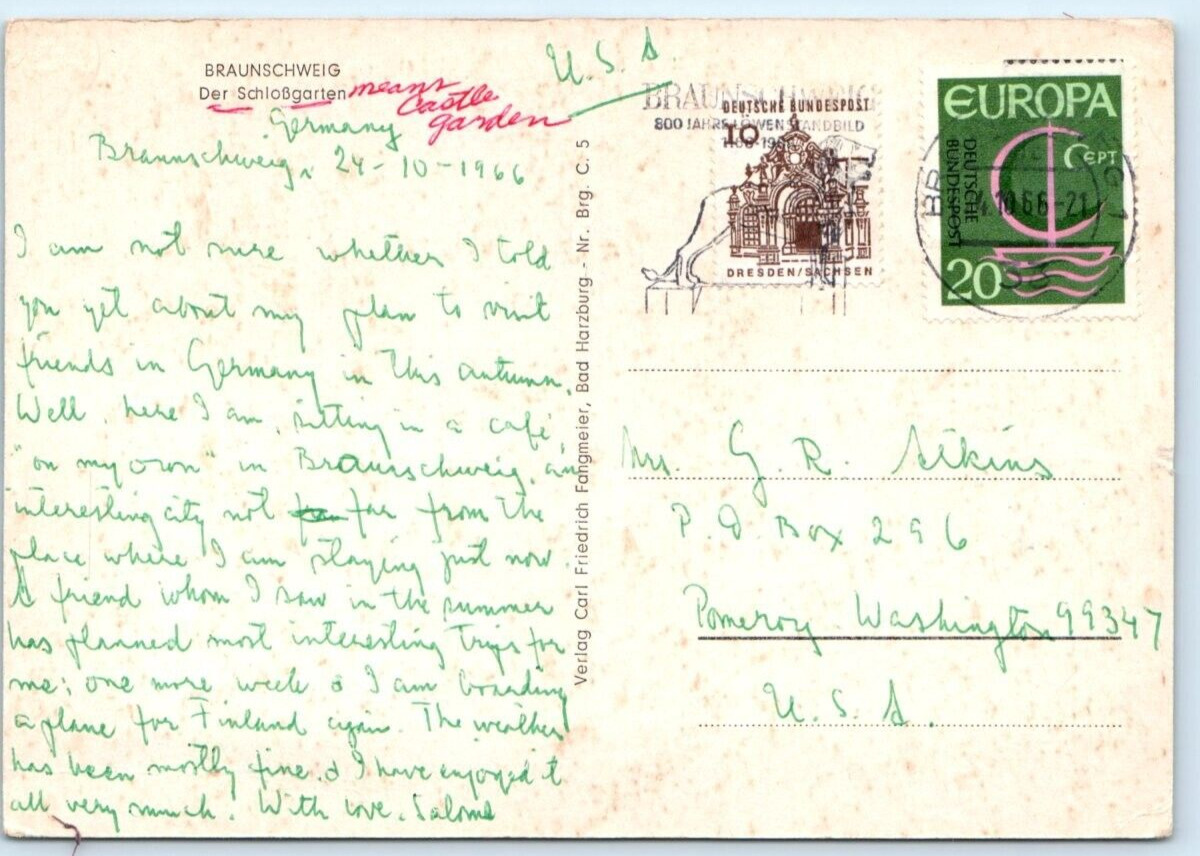 BRAUNSCHWEIG
Der Schloßgarten
means
Castle
garden
U. S. A
Germany
Braunschweig, 24-10-1966
I am not sure whether I told
you yet about my plan to visit
friends in Germany in this autumn.
Well, here I am, sitting in a café,
"on my own" in Braunschweig, an
interesting city not far from the
place where I am staying just now.
A friend whom I saw in the summer
has planned most interesting trips for
me; one more week & I am boarding
a plane for Finland again. The weather
has been mostly fine & I have enjoyed it
all very much. With love, Salome
Verlag Carl Friedrich Fangmeier, Bad Harzburg - Nr. Brg. C. 5
BRAUNSCHWEIG
800 JAHRE LÖWENSTANDBILD
DEUTSCHE BUNDESPOST
10
DRESDEN/SACHSEN
EUROPA
CEPT
DEUTSCHE
BUNDESPOST
20
10.66-21
Mrs. G. R. Atkins
P. O Box 296
Pomeroy Washington 99347
U. S. A.